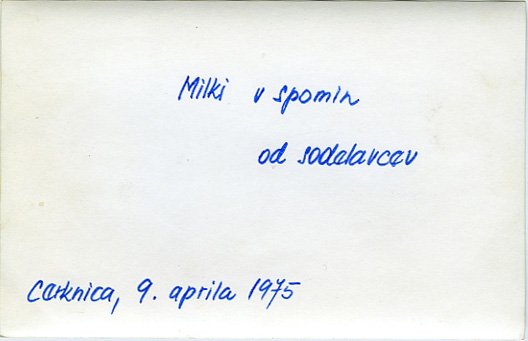 Milki v spomin
od sodelavcev
Cerknica, 9. aprila 1975